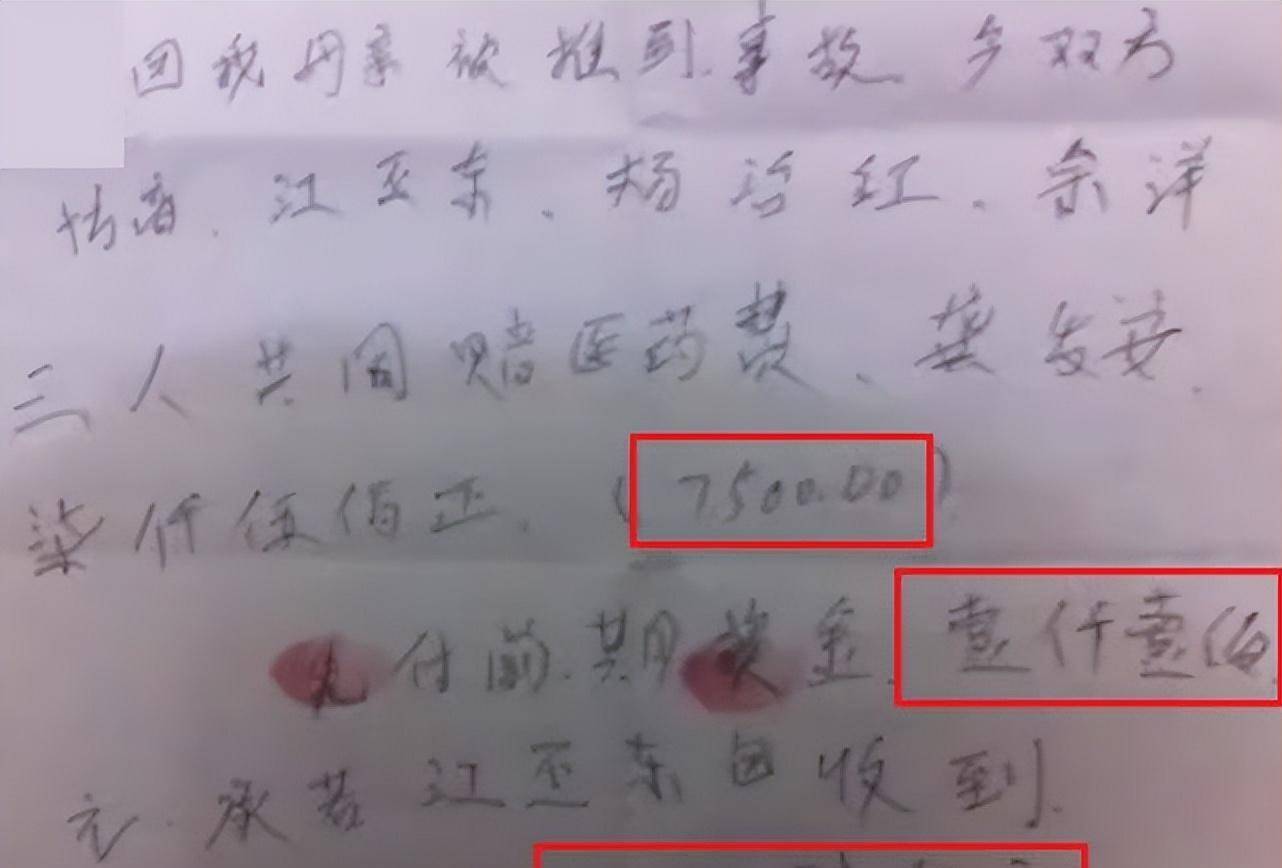 因我母亲被推到事故.今双方
协商.江亚东、杨治红、余洋
三人共同赔医药费、龚发安.
柒仟伍佰正.(7500.00)
先付前.期奖金.壹仟壹佰
元.承若江亚东 收到.